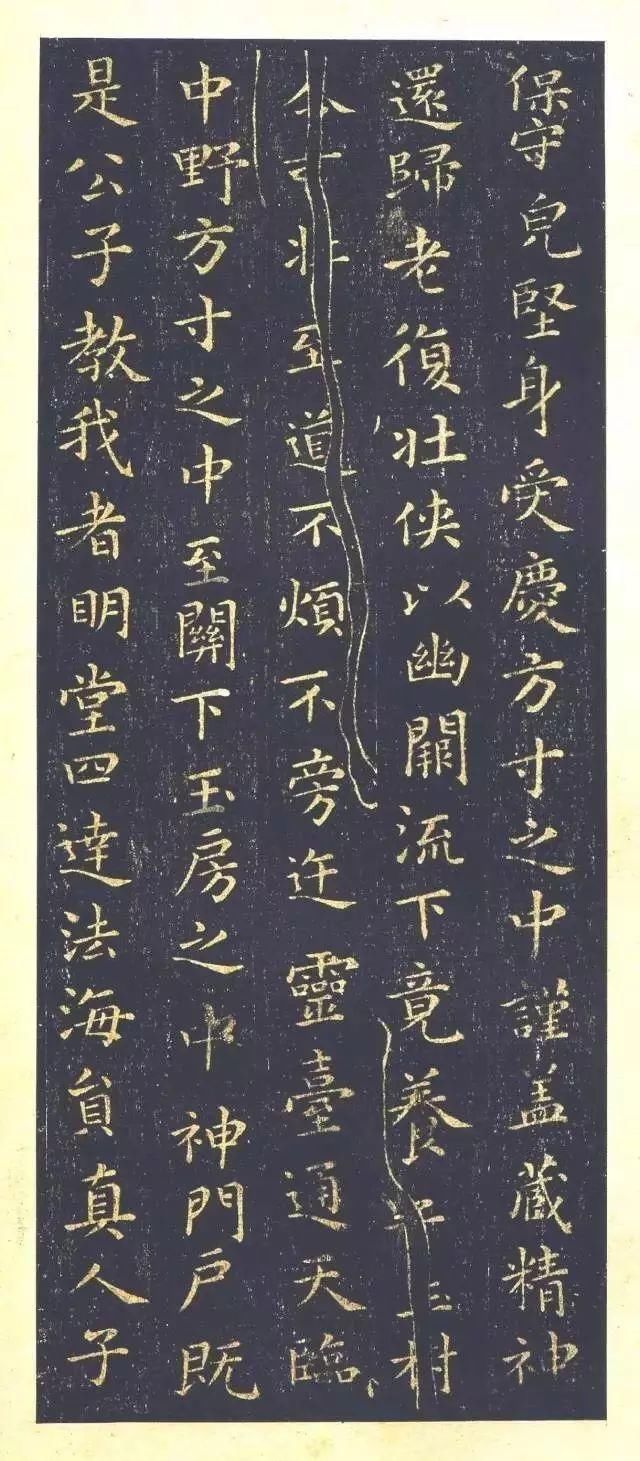 保守皃堅身受慶方寸之中謹盖蔵精神
還歸老復壯俠以幽闕流下竟養玉村
至道不煩不旁迕靈臺通天臨
中野方寸之中至關下玉房之中神門戶既
是公子教我者眀堂四達法海貟真人子